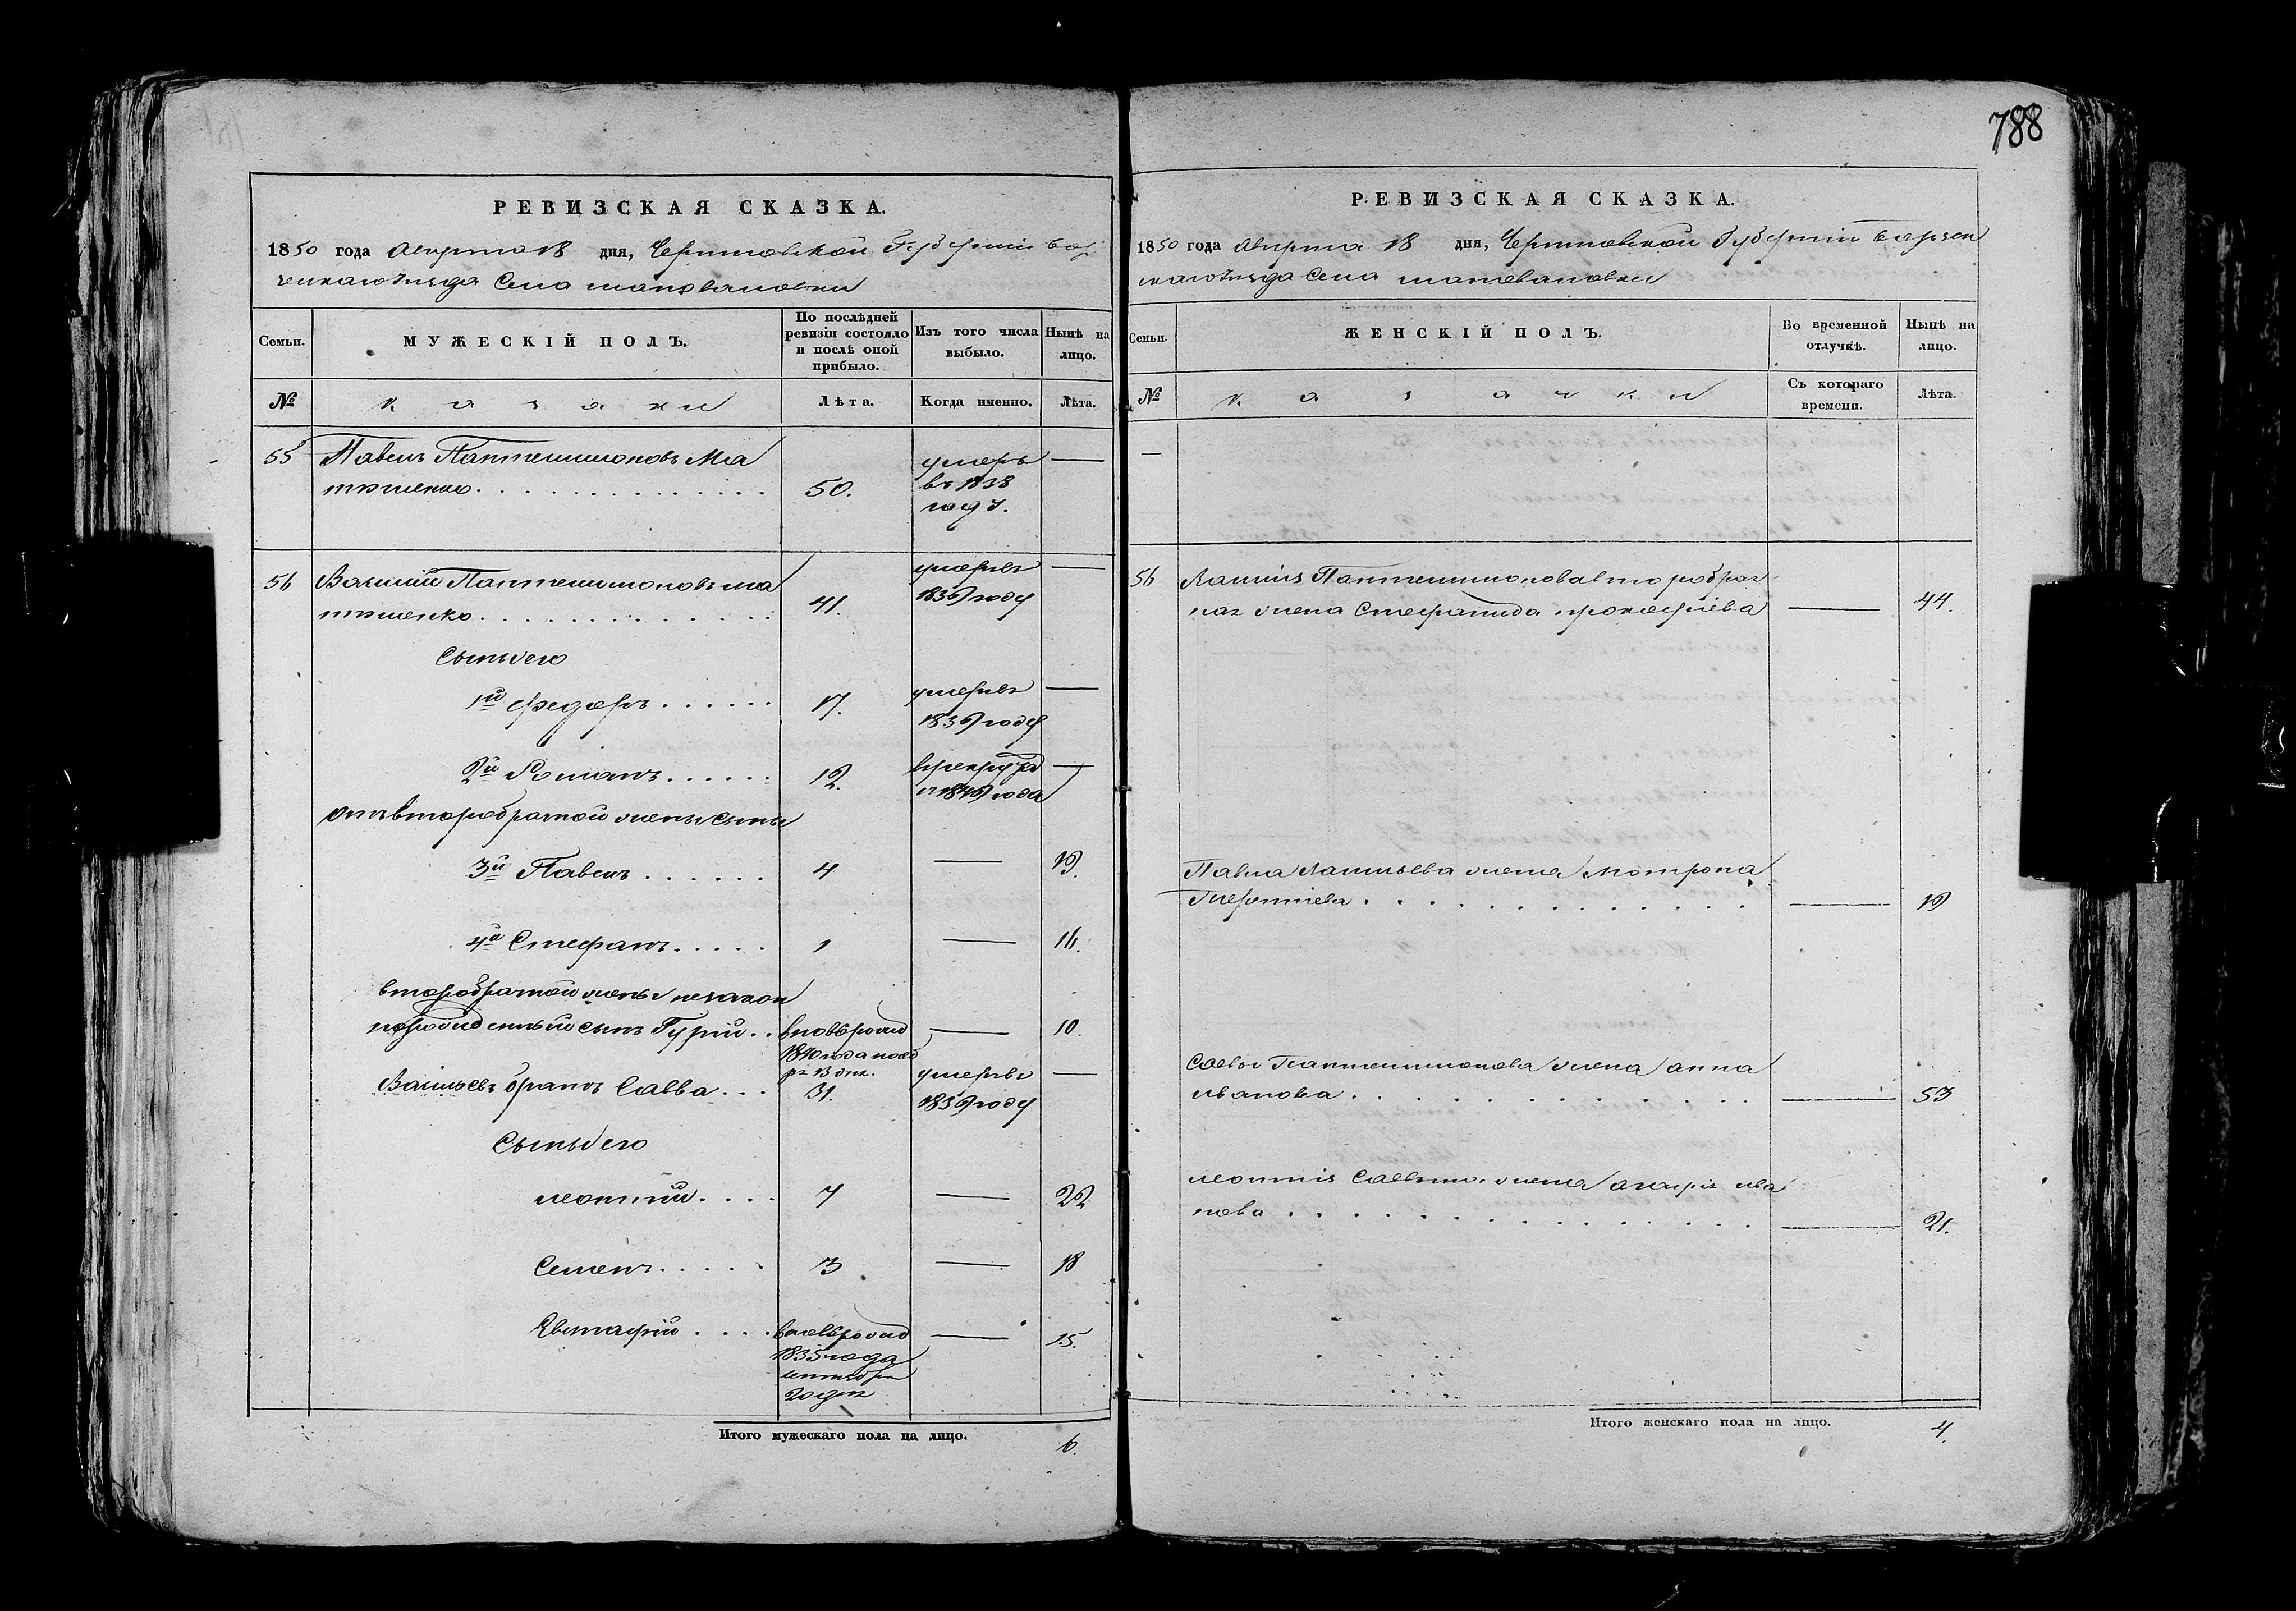 788
РЕВИЗСКАЯ СКАЗКА.
1850 года Августа 18 дня, Черниговской Губернии Бор
зенскаго Уезда Села
Семьи.
МУЖЕСКІЙ ПОЛЪ.
По послѣдней ревизіи состояло и послѣ оной прибыло.
Изъ того числа выбыло.
Нынѣ на лицо.
№
казаки
Лѣта.
Когда именно.
Лѣта.
55 Павелъ Пантелимоновъ Ма
тяшенко 50. умеръ
въ 1838
году. —
56 Василий Пантелимоновъ Ма
тяшенко 41. умеръ въ
1839 году —
Сыны его
1й Федоръ 17. умеръ въ
1839 году —
2й Романъ 12. в рекруты
году —
отъ второбрачной жены сыны
3й Павелъ 4 — 19.
4й Стефанъ 1 — 16.
второбрачной жены незакон
норожденный сынъ Гурий вновь рожд — 10.
1840 года нояб
ря 13 дня.
Васильевъ братъ Савва 31. умеръ въ
1839 году —
Сыны его
Леонтий 7 — 22
Семенъ 3 — 18
Евстафий вновь рожд — 15.
1835 года
сентября
20 дня
Итого мужескаго пола на лицо. 6.
РЕВИЗСКАЯ СКАЗКА.
1850 года Августа 18 дня, Черниговской Губернии Борзен
скаго Уезда Села
Семьи.
ЖЕНСКІЙ ПОЛЪ.
Во временной отлучкѣ.
Нынѣ на лицо.
№
казачки
Съ котораго времени.
Лѣта.
—
56 Василия Пантелимонова второбрач
ная жена Стефанида Прокофиева — 44.
Павла Васильева жена Мотрона
Терентиева — 19
Саввы Пантелимонова жена Анна
Иванова — 53
Леонтия Саввина жена Агафия Ива
нова — 21.
Итого женскаго пола на лицо. 4.